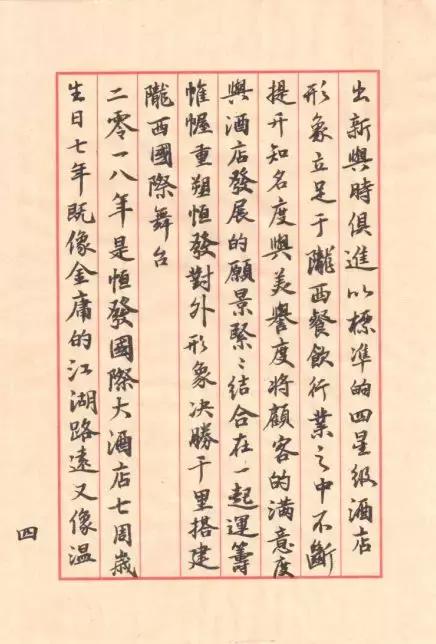 出新與時俱進以標準的四星級酒店
形象立足于隴西餐飲行業之中不斷
提升知名度與美譽度將顧客的滿意度
與酒店發展的願景緊〻結合在一起運籌
帷幄重塑恒發對外形象決勝千里搭建
隴西國際舞台
二零一八年是恒發國際大酒店七周歲
生日七年既像金庸的江湖路遠又像溫
四